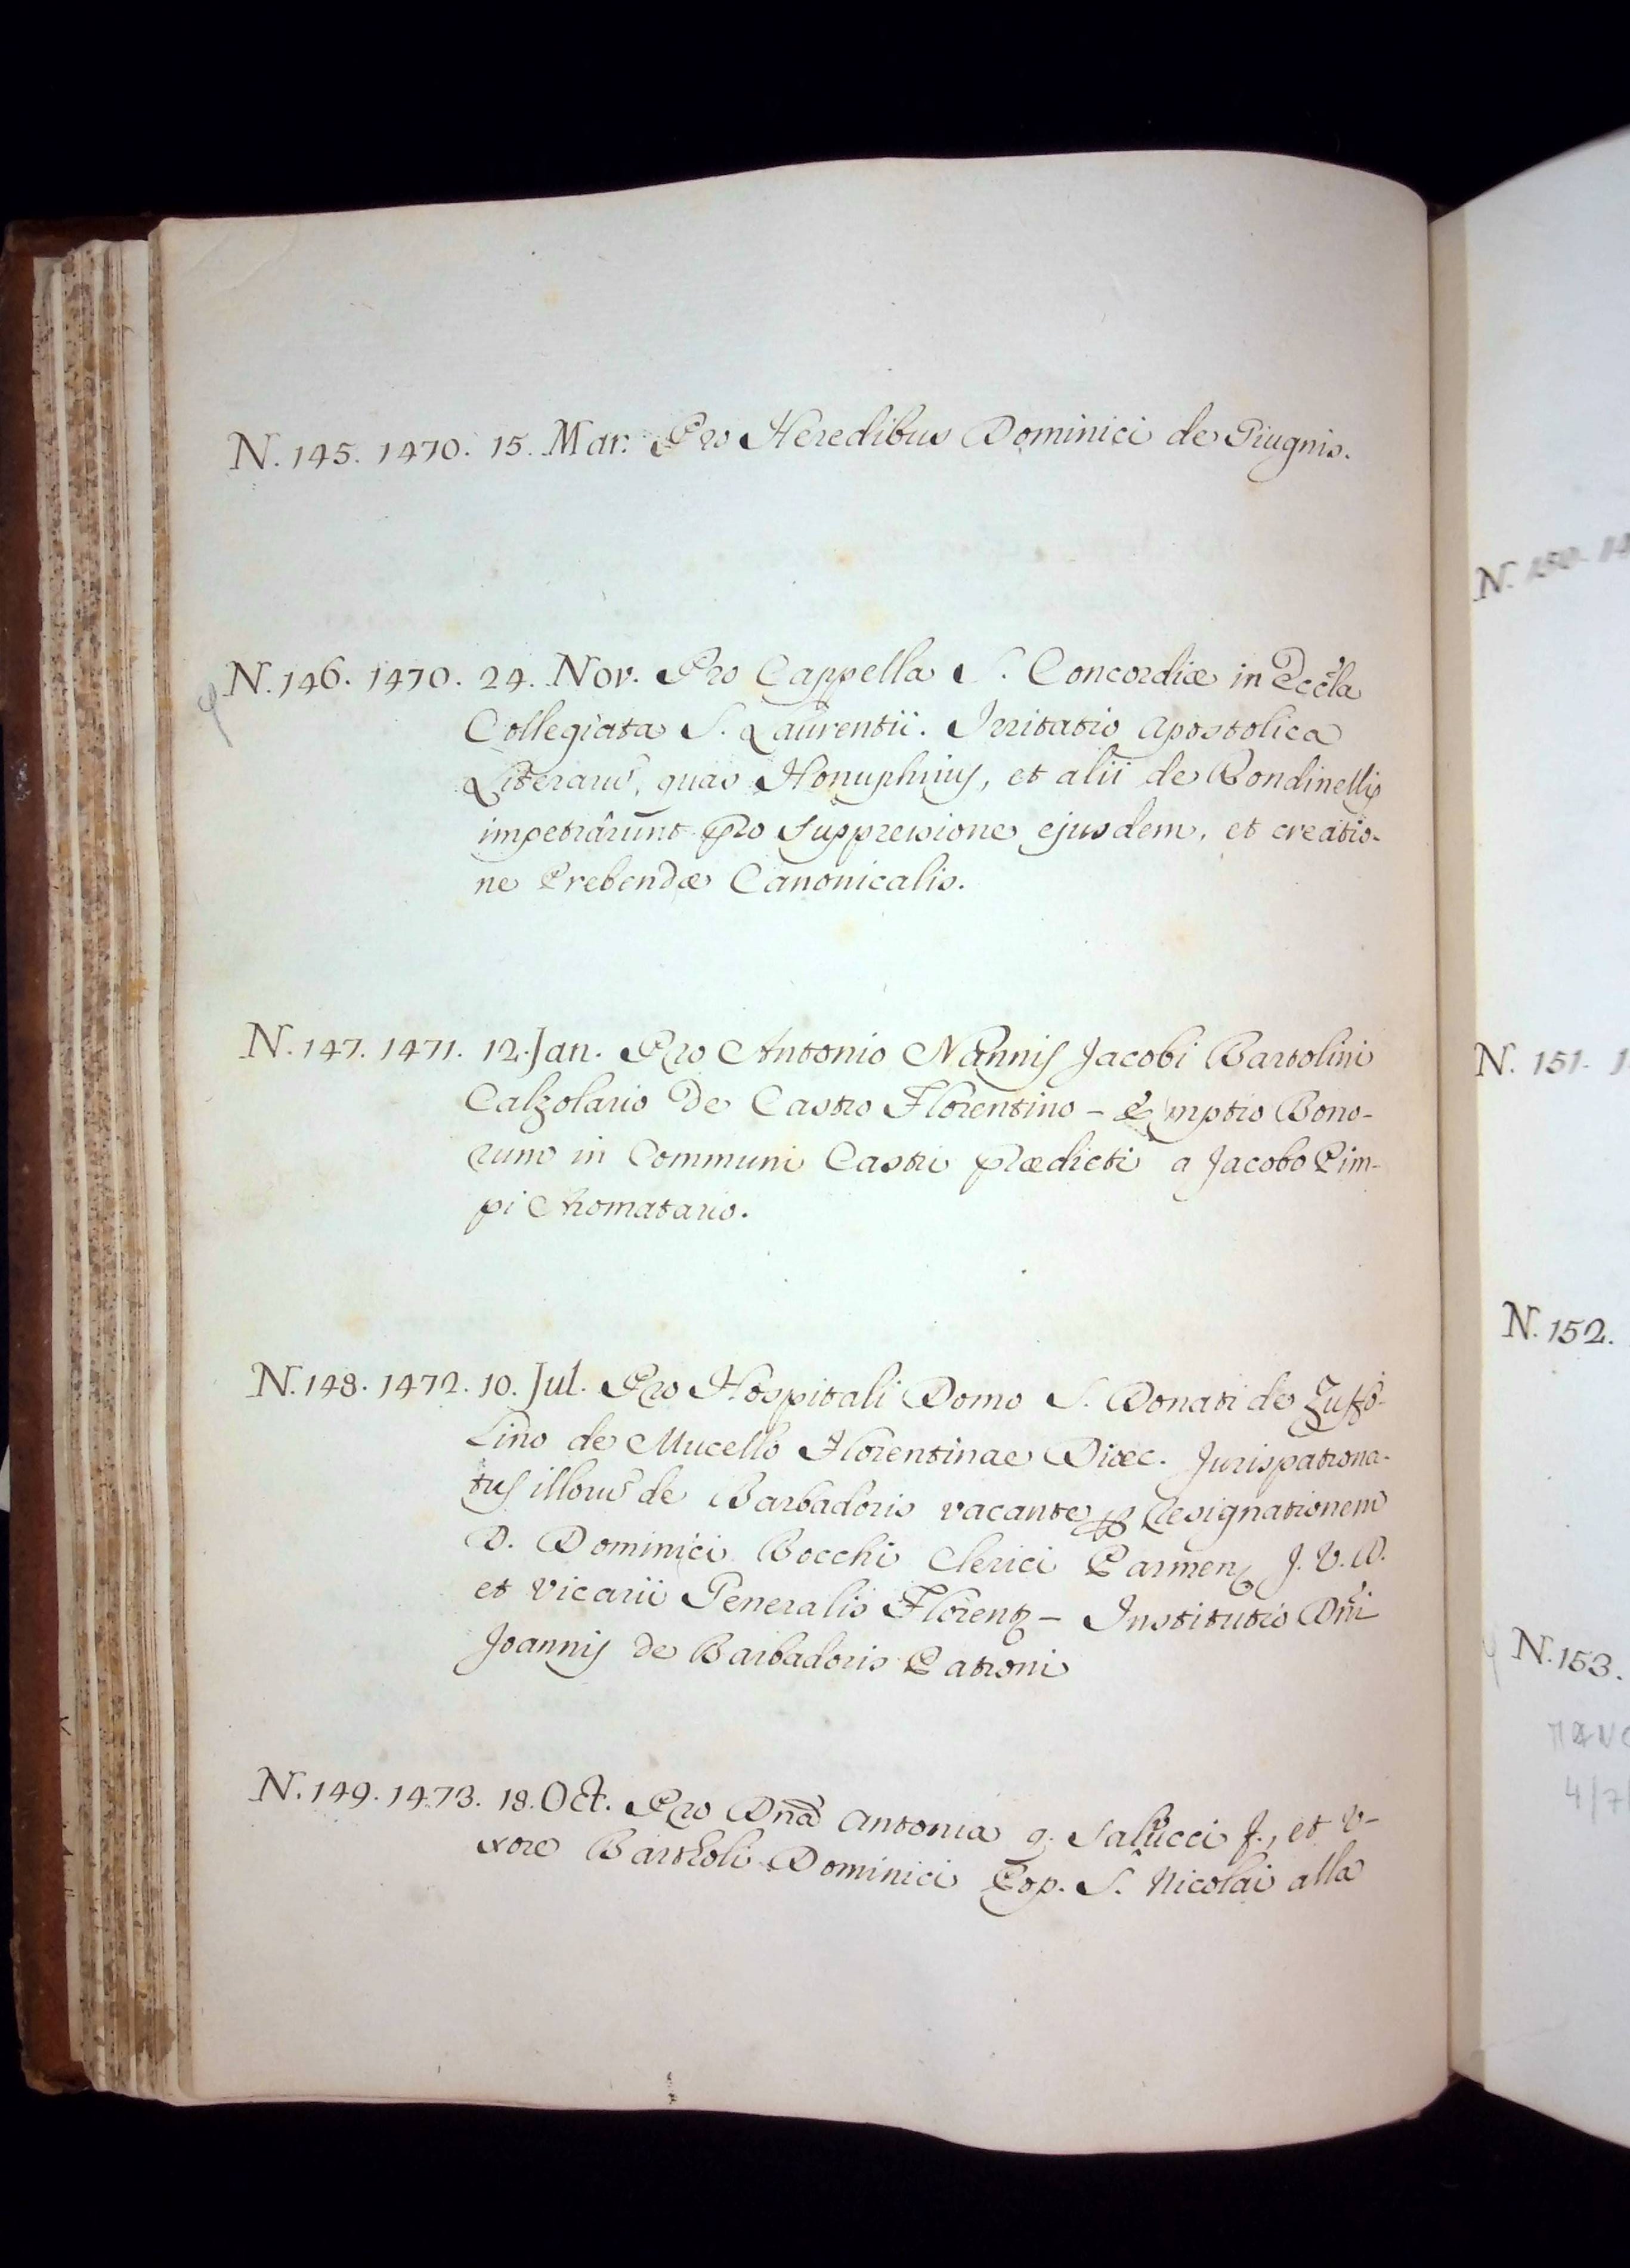 N. 145. 1470. 15. Mar. Pro Heredibus Dominici de Giugnis.
N. 146. 1470. 24. Nov. Pro Cappella S. Concordiæ in Eccla
Collegiata S. Laurentii. Irritatio Apostolica
Literarum, quas Honuphrius, et alii de Rondinellis
impetrârunt pro suppressione ejusdem, et creatio-
ne Prebendæ Canonicalis.
N. 147. 1471. 12. Jan. Pro Antonio Nannis Jacobi Bartolini
Calzolario de Castro Florentino - Emptio Bono-
rum in Communi Castri prædicti a Jacobo Pim-
pi Aromatario.
N. 148. 1472. 10. Jul. Pro Hospitali Domo S. Donati de Zuffo-
Lino de Mucello Florentinae Diœc. Jurispatrona-
tus illorum de Barbadoris vacante per Resignationem
D. Dominici Bocchi Clerici Parmen. J. V. D.
et Vicarii Generalis Florent. - Institutio Dni
Joannis de Barbadoris Patroni
N. 149. 1473. 18. Oct. Pro Dna Antonia q. Salucci f., et V-
xore Bartholi Dominici Pop. S. Nicolai alla
N. 150. 14
N. 151. 1
N. 152.
N. 153.
4/7/